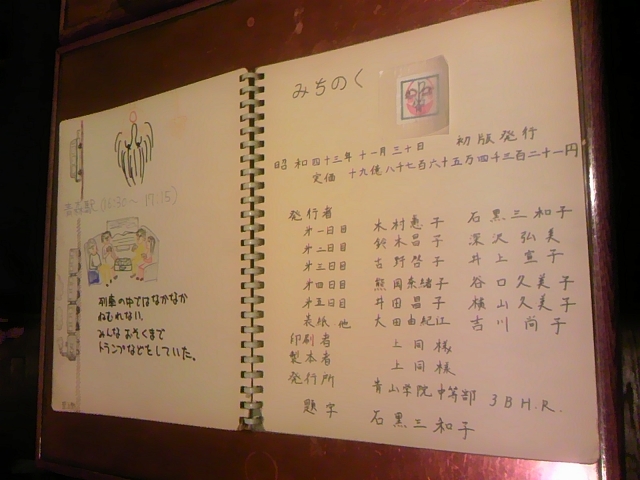 青森駅 (16:30〜17:15)
列車の中ではなかなか
ねむれない。
みんなおそくまで
トランプなどをしていた。
みちのく
昭和四十三年 十一月三十日 初版発行
定価 十九億八千七百六十五万四千三百二十一円
発行者
才一日目 木村恵子 石黒三和子
才二日目 鈴木昌子 深沢弘美
才三日目 吉野啓子 井上宣子
才四日目 熊岡糸緒子 谷口久美子
才五日目 井田昌子 横山久美子
表紙 他 大田由紀江 吉川尚子
印刷者 上同様
製本者 上同様
発行所 青山学院中等部 3BH.R.
題字 石黒三和子